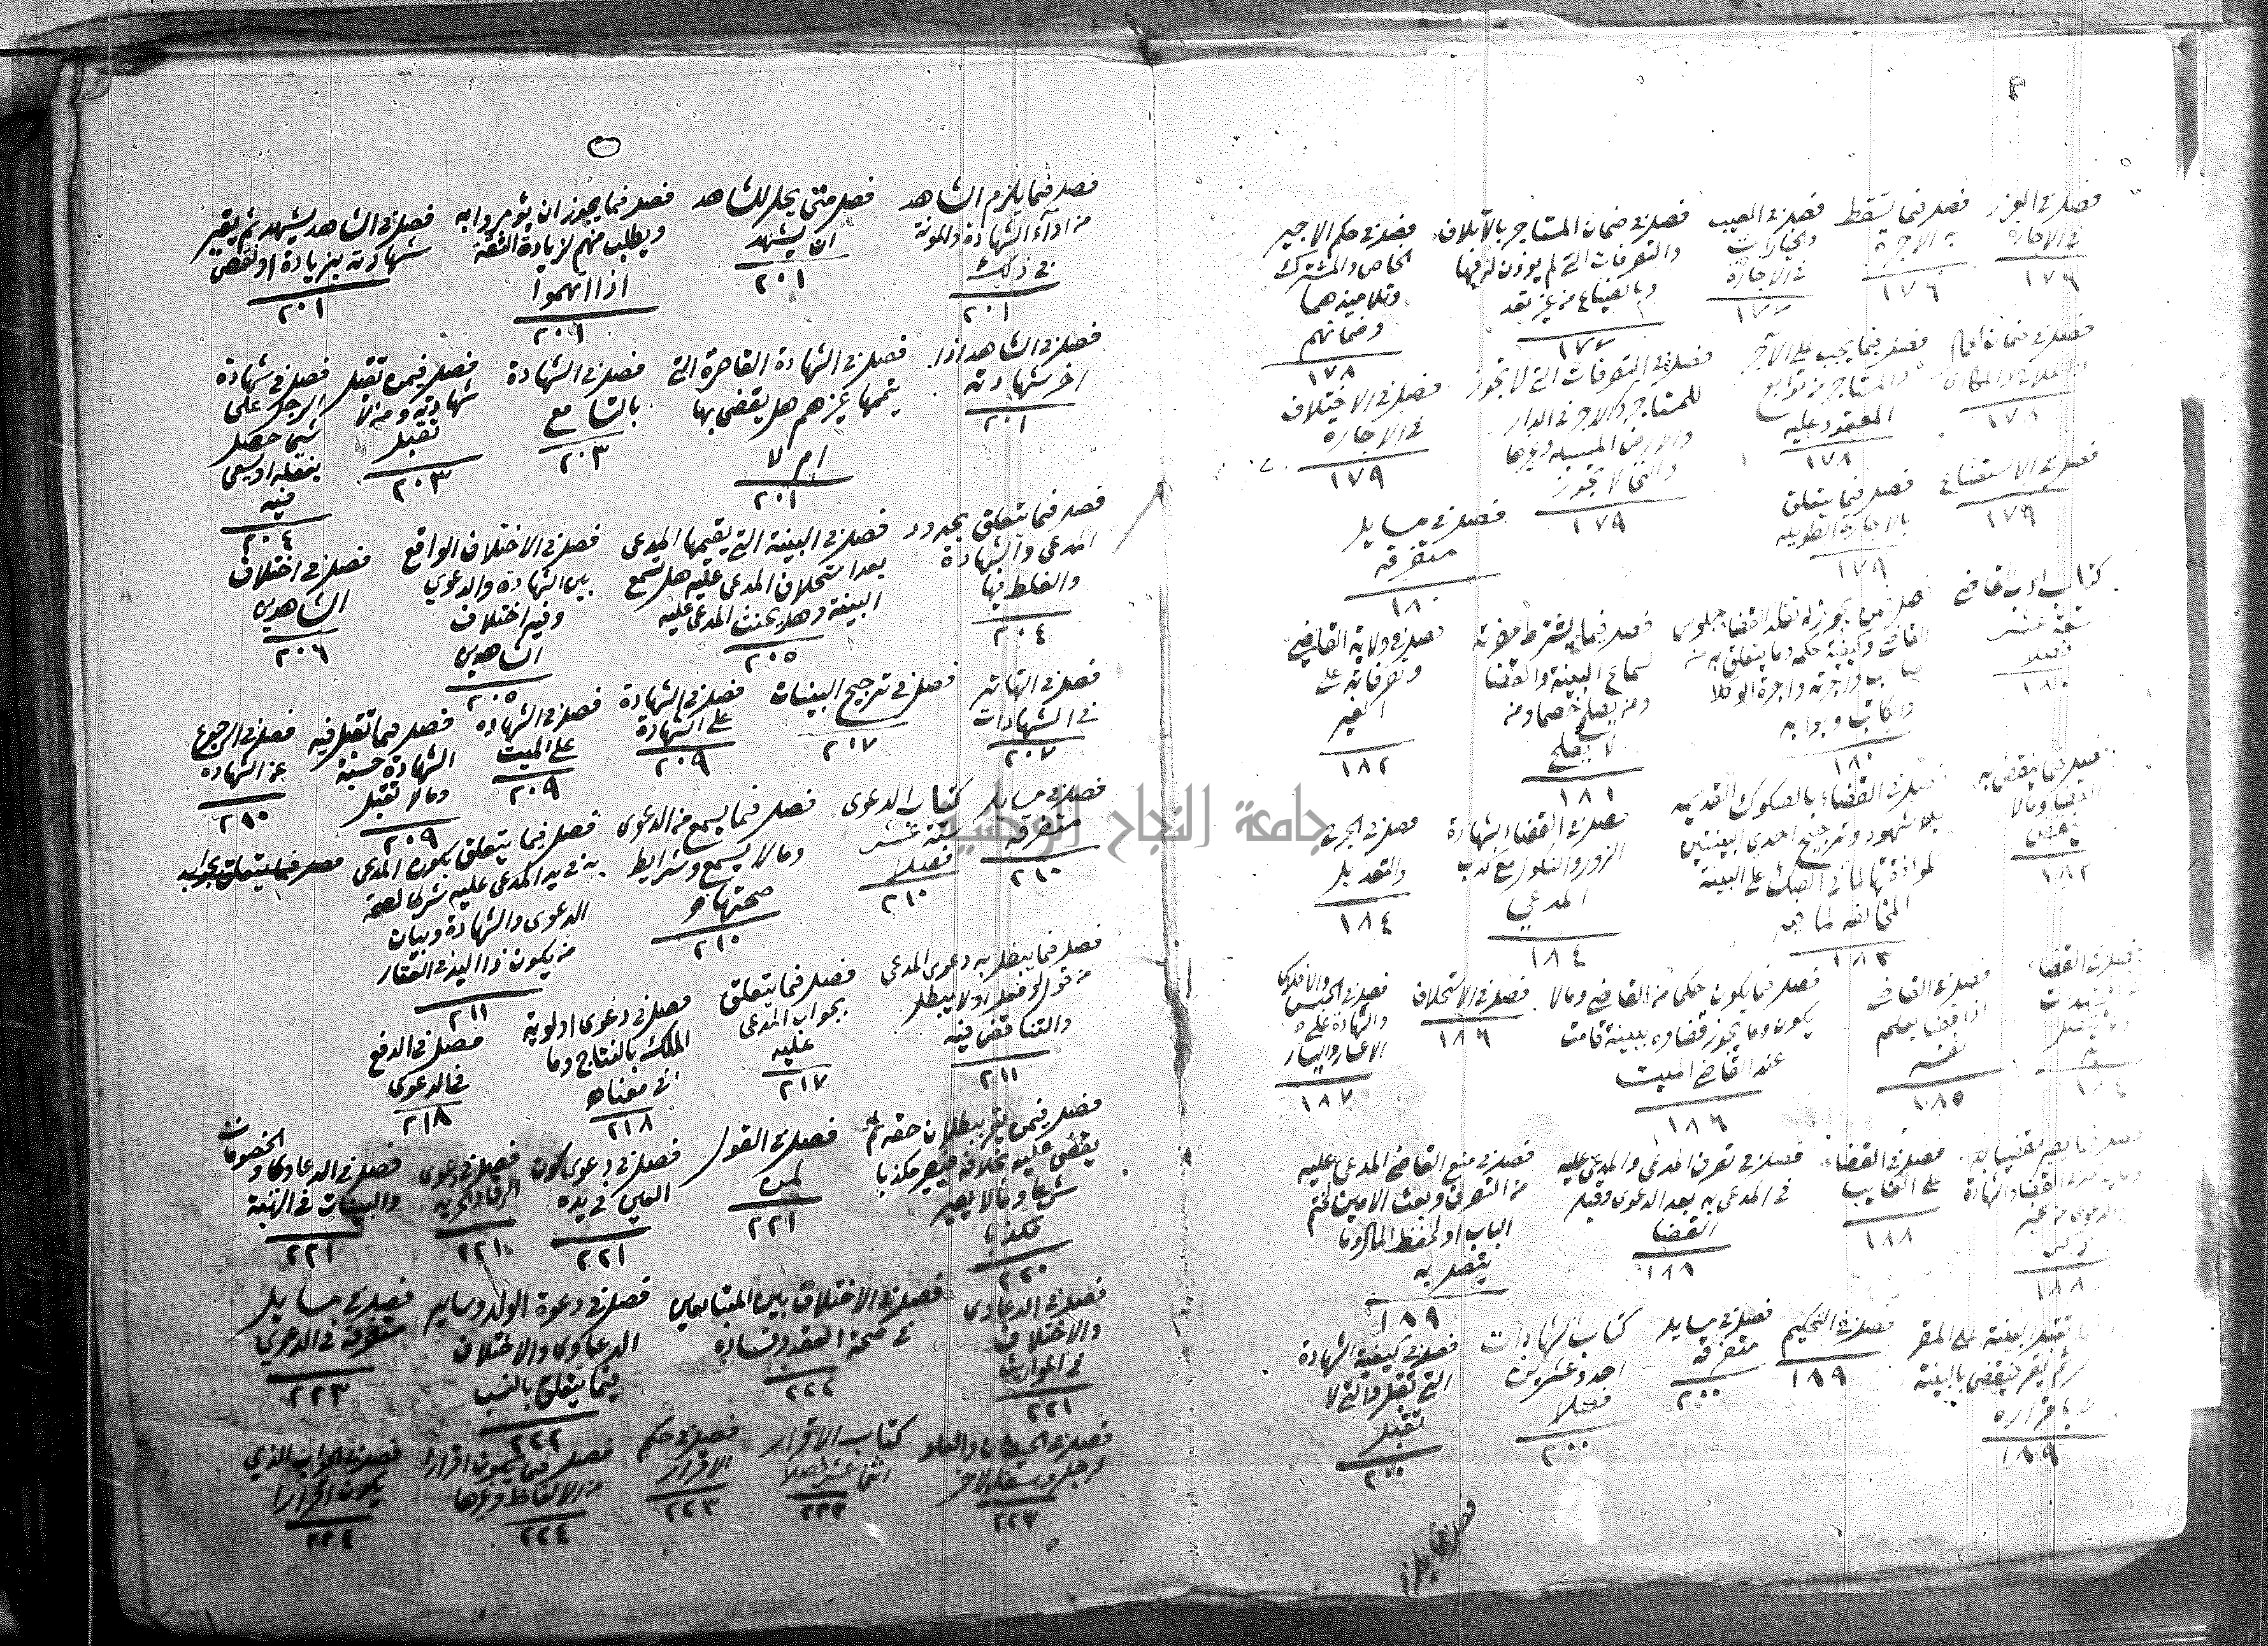 فصل في العذر
في الاجارة
١٧٦
فصل فيما يسقط
به الاجرة
١٧٦
فصل في العيب
والخيارات
في الاجارة
١٧٧
فصل في ضمان المستاجر بالاتلاف
والتصرفات التي لم يوذن له فيها
وبالضياع من غير تعد
١٧٧
فصل في حكم الاجير
الخاص والمشترك
وتلاميذهما
وضمانهم
١٧٨
١٧٨
فصل فيما يجب على الآجر
والمستاجر من توابع
المعقود عليه
١٧٨
فصل في التصرفات التي لا تجوز
للمستاجر والاجر في الدار
والتي لا تجوز
١٧٩
فصل في الاختلاف
في الاجارة
١٧٩
فصل في الاستصناع
١٧٩
فصل فيما يتعلق
بالاجارة الطويله
١٧٩
فصل في مسايل
متفرقه
١٨٠
كتاب ادب القاضي
ستة عشر
فصلا
١٨٠
فصل من يجوز له تقلد القضاء وجلوس
القاضي وكيفية حكمه وما يتعلق به من
واجرته واجرة الوكلا
والكاتب وبوابه
١٨٠
فصل فيما يشترط حضرته
لسماع البينة والقضا
ومن يصلح خصما ومن
لا يصلح
١٨١
فصل في ولاية القاضي
وتصرفاته على
الغير
١٨٢
فصل فيما ينقض به
القضا وما لا
ينقض
١٨٢
فصل في القضاء بالصكوك القديمه
بلا شهود وترجيح احدى البينتين
لموافقتها لما في الصك على البينة
المخالفه لما فيه
١٨٣
فصل في القضاء بشهادة
الزور والنكول مع كذب
المدعي
١٨٤
فصل في الجرح
والتعديل
١٨٤
فصل في القضاء
١٨٤
فصل في القاضي
اذا قضا بعلم
نفسه
١٨٥
فصل فيما يكون حكما من القاضي وما لا
يكون وما يجوز قضاوه ببينة قامت
عند القاضي الميت
١٨٦
فصل في الاستحلاف
١٨٦
فصل في الحبس والافلاس
والشهادة على
الاعسار واليسار
١٨٧
١٨٨
فصل في القضاء
على الغايب
١٨٨
فصل في تصرف المدعي والمدعى عليه
في المدعى به بعد الدعوى وقبل
القضا
١٨٩
فصل في منع القاضي المدعى عليه
من التصرف وبعث الامين لختم
الباب او لحفظ المال وما
يتصل به
١٨٩
تقبل البينة على المقر
ثم يقر فيقضى بالبينة
لا باقراره
١٨٩
فصل في التحكيم
١٨٩
فصل في مسايل
متفرقه
٢٠٠
كتاب الشهادات
احد وعشرين
فصلا
٢٠٠
فصل في كيفية الشهادة
التي تقبل والتي لا
تقبل
٢٠٠
فصل فيما يلزم
فصل فيما يلزم الشاهد
من اداء الشهادة والمونة
في ذلك
٢٠١
فصل متى يحل للشاهد
ان يشهد
٢٠١
فصل فيما يجوز ان يؤمروا به
ويطلب منهم لزيادة الثقة
اذا اتهموا
٢٠١
فصل في الشاهد يشهد ثم يغير
شهادته بزيادة او نقص
٢٠١
فصل في الشاهد اذا
اخر شهادته
٢٠١
فصل في الشهادة القاصرة التي
يتمها غيرهم هل يقضى بها
ام لا
٢٠١
فصل في الشهادة
بالتسامع
٢٠٣
فصل فيمن تقبل
شهادته ومن لا
تقبل
٢٠٣
فصل في شهادة
الرجل على
شي حصل
بفعله او سعى
فيه
٢٠٤
فصل فيما يتعلق بحدود
المدعى والشهادة
والغلط فيها
٢٠٤
فصل في البينة التي يقيمها المدعي
بعد استحلاف المدعى عليه هل تسمع
البينة وهل يحنث المدعى عليه
٢٠٥
فصل في الاختلاف الواقع
بين الشهادة والدعوى
وفيه اختلاف
الشاهدين
٢٠٥
فصل في اختلاف
الشاهدين
٢٠٦
فصل في التهاتر
في الشهادات
٢٠٧
فصل في ترجيح البينات
٢١٧
فصل في الشهادة
على الشهادة
٢٠٩
فصل في الشهاده
على الميت
٢٠٩
فصل فيما تقبل فيه
الشهادة حسبة
وما لا تقبل
٢٠٩
فصل في الرجوع
عن الشهاده
٢١٠
فصل في مسايل
متفرقه
٢١٠
كتاب الدعوى
ستة عشر
فصلا
٢١٠
فصل فيما يسمع من الدعوى
وما لا يسمع وشرايط
صحتها
٢١٠
فصل فيما يتعلق بكون المدعى
به في يد المدعى عليه شرط لصحة
الدعوى والشهادة وبيان
من يكون ذا اليد في العقار
٢١١
فصل فيما يتعلق بجواب
فصل فيما يبطل به دعوى المدعي
من قول او فعل او لا يبطل
والتناقض فيه
٢١١
فصل فيما يتعلق
بجواب المدعى
عليه
٢١٧
فصل في دعوى اولوية
الملك بالنتاج وما
في معناه
٢١٨
فصل في الدفع
في الدعوى
٢١٨
فصل فيمن يقر ببطلان حقه ثم
يقضى عليه بخلافه فيصير مكذبا
شرعا وما لا يصير
مكذبا
٢٢٠
فصل في القول
لمن
٢٢١
فصل في دعوى كون
العين في يده
٢٢١
فصل في دعوى
الرق والحريه
٢٢١
فصل في الدعاوى والخصومات
والبينات في النسبة
٢٢١
فصل في الدعاوى
والاختلاف
في المواريث
٢٢١
فصل في الاختلاف بين المتبايعين
في صحة العقد وفساده
٢٢٢
فصل في دعوة الولد وساير
الدعاوى والاختلاف
فيما يتعلق بالنسب
٢٢٢
فصل في مسايل
متفرقة في الدعوى
٢٢٣
فصل في الحيطان والعلو
لرجل وسفله لاخر
٢٢٣
كتاب الاقرار
اثنا عشر فصلا
٢٢٣
فصل في حكم
الاقرار
٢٢٣
فصل فيما يكون اقرارا
من الالفاظ وغيرها
٢٢٤
فصل في الجواب الذي
يكون اقرارا
٢٢٤
جامعة النجاح الوطنية